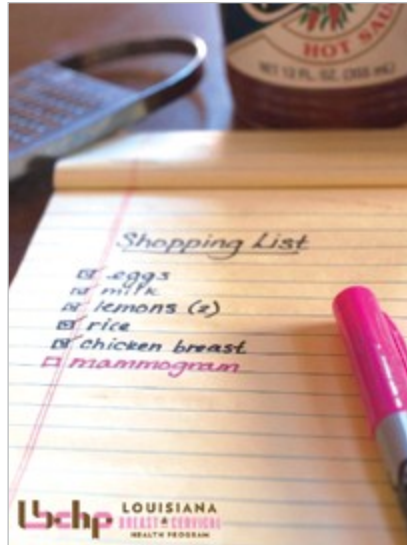 HOT SAU
NET 12 FL. OZ. (355 mL)
Shopping List
eggs
milk
lemons (2)
rice
chicken breast
mammogram
lbchp LOUISIANA
BREAST & CERVICAL
HEALTH PROGRAM